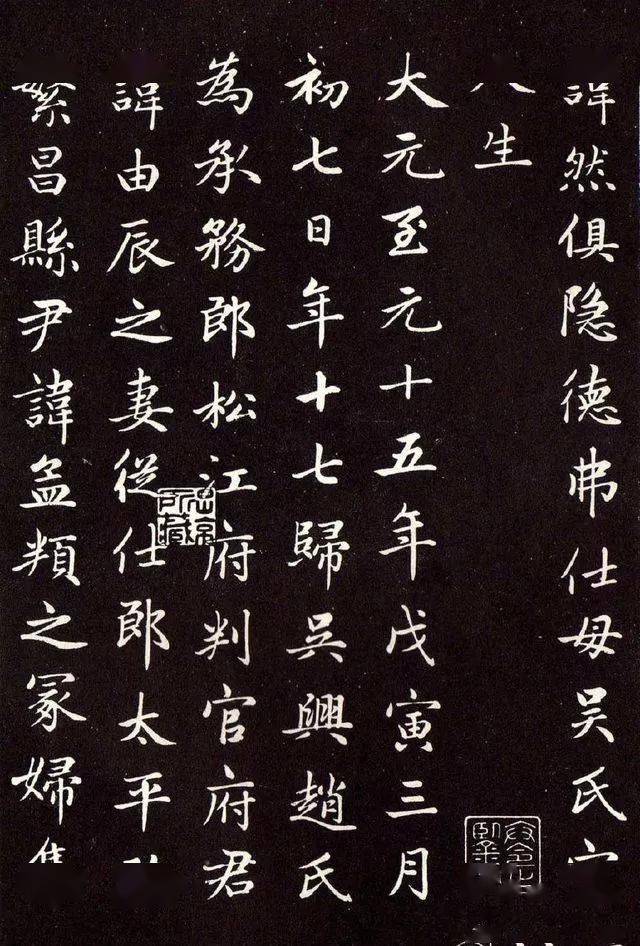 然俱隐德弗仕母吴氏
人生
大元至元十五年戊寅三月
初七日年十七歸吴興趙氏
為承務郎松江府判官府君
諱由辰之妻從仕郎太平
繁昌縣尹諱孟頖之冢婦